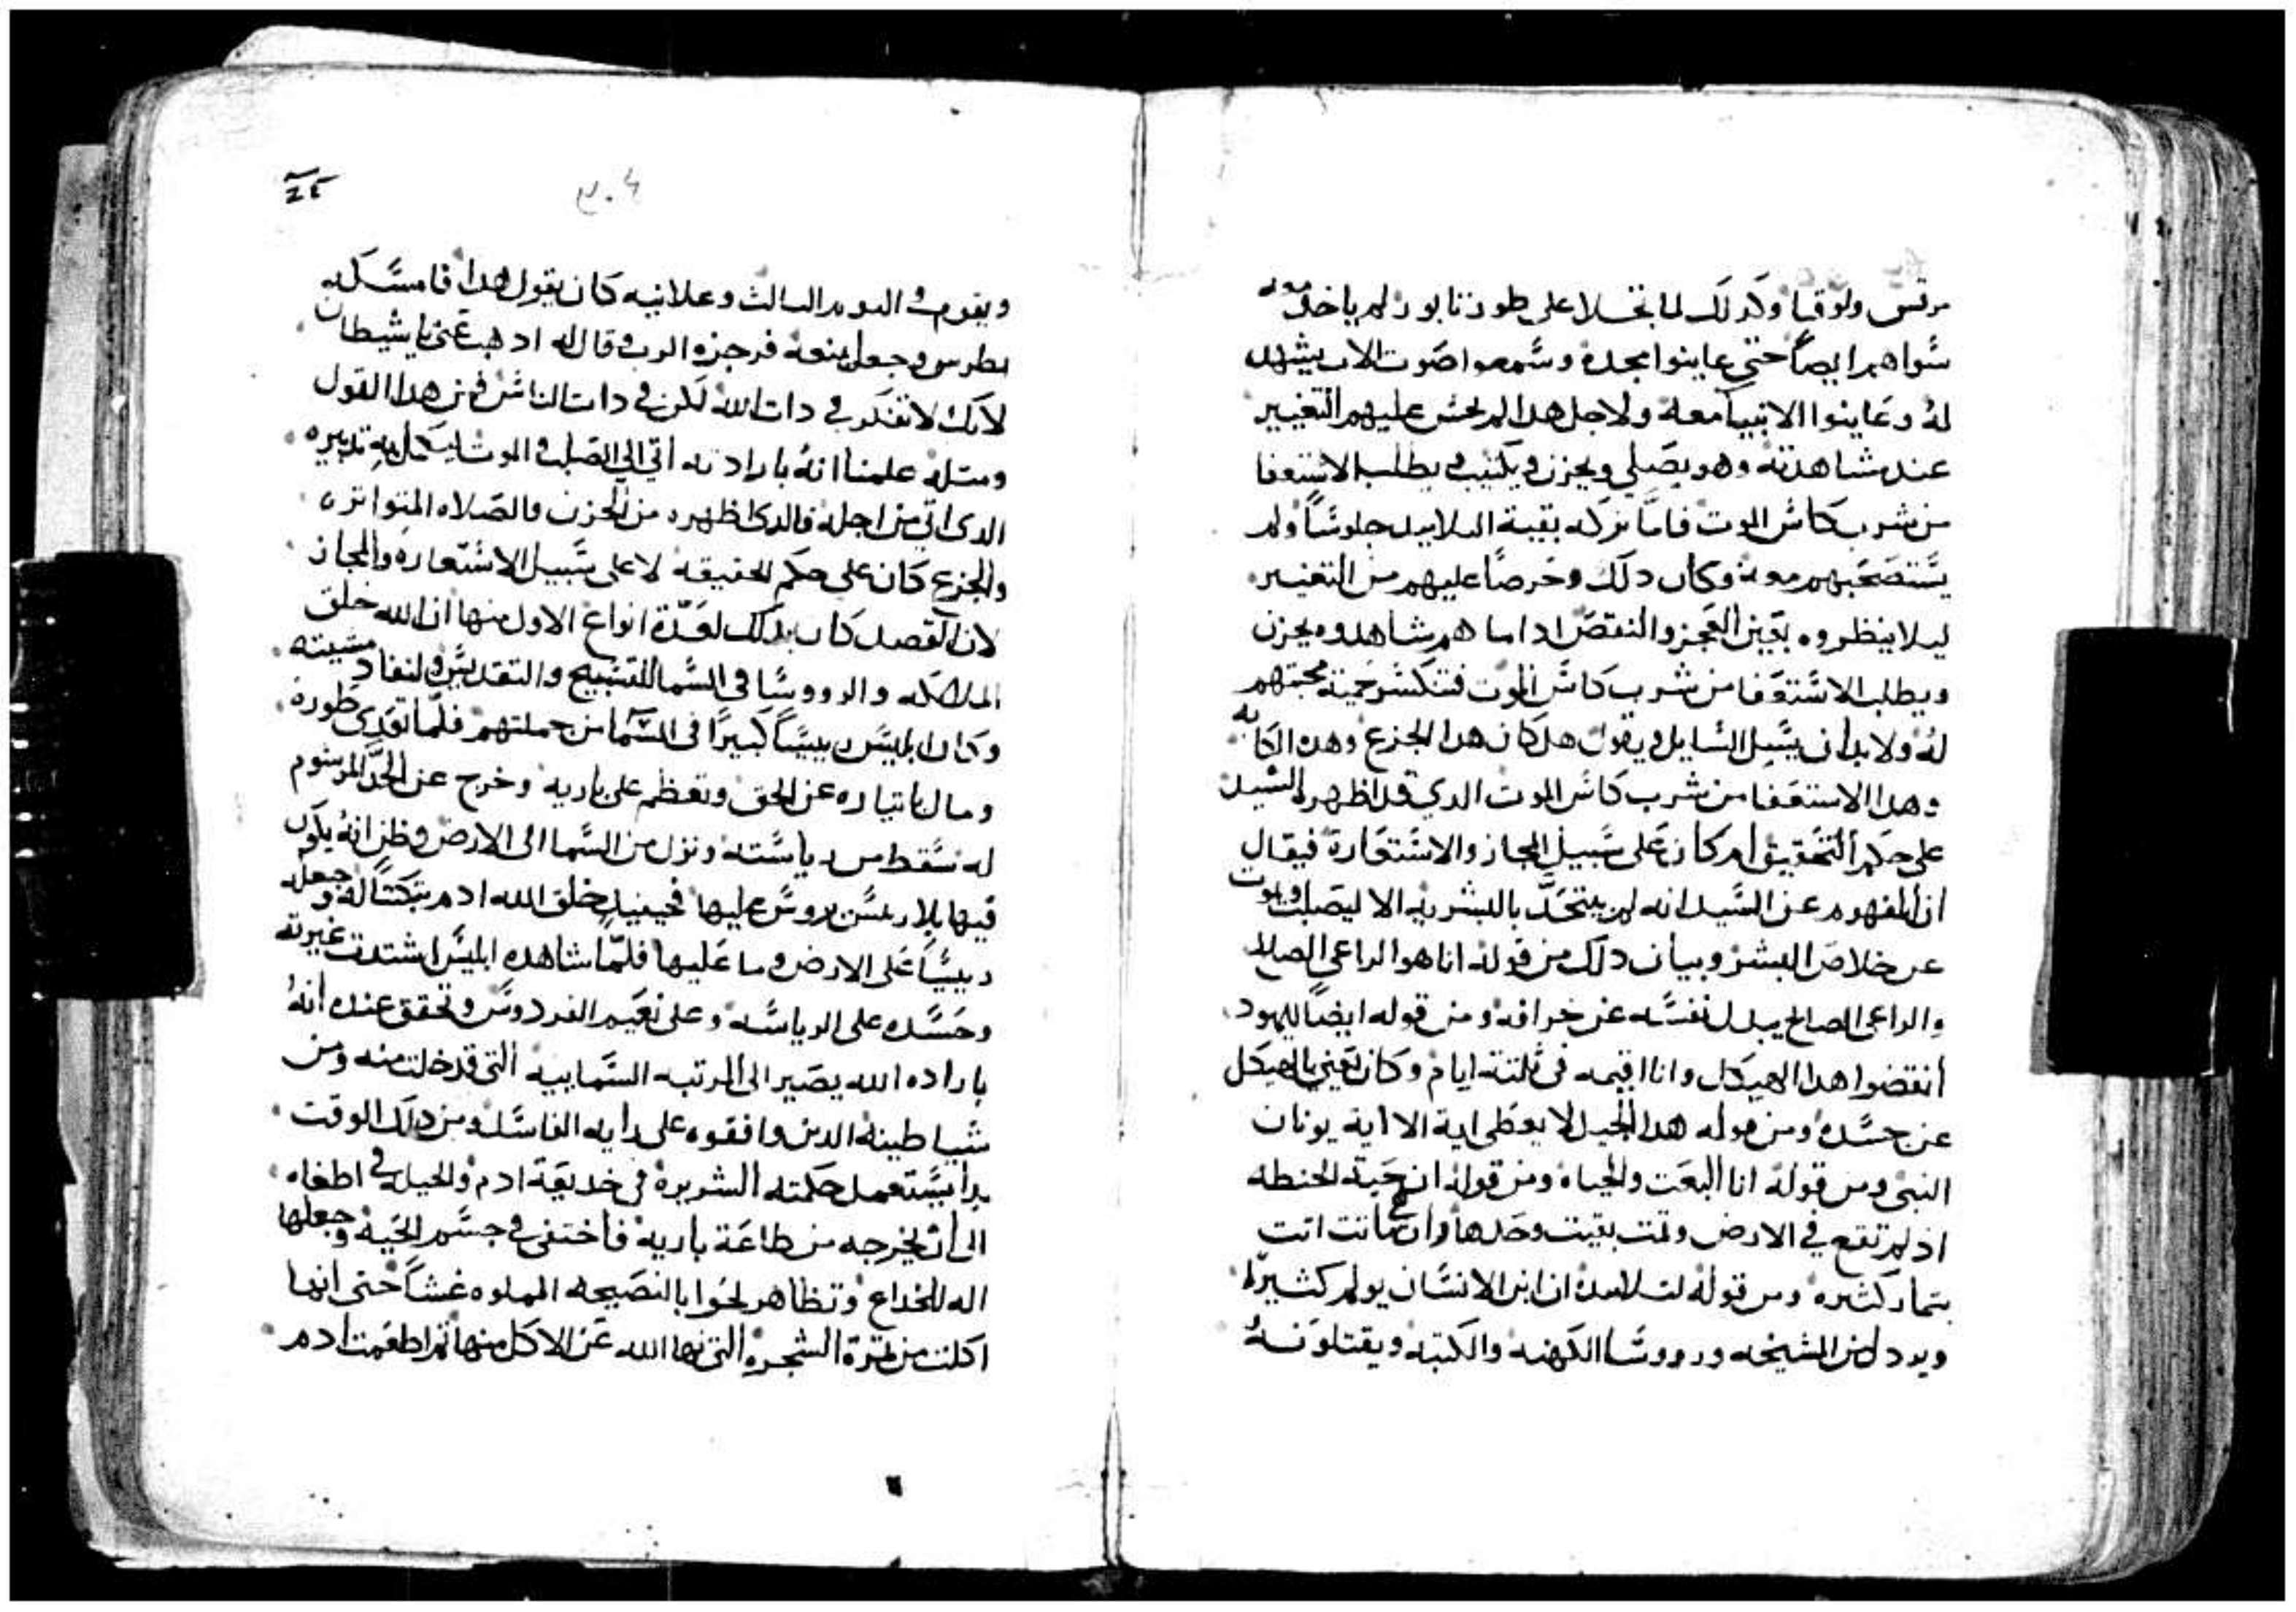 مرقس ولوقا وكدلك لما تجلا على طور تابور لم ياخد معه
سواهم ايضاً حتي عاينوا مجده وسمعوا صوت الاب يشهد
له وعاينوا الانبيا معه ولاجل هدا لم يخش عليهم التغيير
عند مشاهدته وهو يصلي ويحزن ويكتيب ويطلب الاستعفا
من شرب كاس الموت فاما تركه بقية التلاميد جلوساً ولم
يستصحبهم معه وكان دلك وحرصاً عليهم من التغيير
ليلا ينظروه بعين العجز والنقص ادا ما هم شاهدوه يحزن
ويطلب الاستعفا من شرب كاس الموت فتنكسر حمية محبتهم
له ولا بد ان يسيل السايل ويقول هل كان هدا الجزع وهده الكابه
وهدا الاستعفا من شرب كاس الموت الدي قد اظهر السيد
علي حكم التحقيق ام كان على سبيل المجاز والاستعارة فيقال
ان المفهوم عن السيد انه لم يتحد بالبشريه الا ليصلب ويموت
عن خلاص البشر وبيان دلك من قوله انا هو الراعي الصالح
والراعي الصالح يبدل نفسه عن خرافه ومن قوله ايضاً لليهود
انقضوا هدا الهيكل وانا اقيمه في ثلتة ايام وكان يعني بالهيكل
عن جسده ومن قوله هدا الجيل لا يعطى اية الا اية يونان
النبي ومن قوله انا البعت والحياه ومن قوله ان حبة الحنطه
اد لم تقع في الارض وتمت بقيت وحدها وان هي ماتت اتت
بتمار كتيره ومن قوله لتلاميده ان ابن الانسان يولم كثيراً
ويردل من المشيخه ورووسا الكهنه والكتبه ويقتلونه
٣٠٤
٢٤
ويقوم في اليوم التالت وعلانيه كان يقول هدا فامسكه
بطرس وجعل يمنعه فزجره الرب وقال له ادهب عني يا شيطان
لانك لا تفكر في دات الله لكن في دات الناس فمن هدا القول
ومتله علمنا انه بارادته اتي الي الصلب والموت ليكمل به تدبيره
الدي اتي من اجله فالدي اظهره من الحزن والصلاه المتواتره
والجزع كان على حكم الحقيقه لا على سبيل الاستعارة والمجاز
لان القصد كان بدلك لعدة انواع الاول منها ان الله خلق
الملايكه والرووسا في السما للتسبيح والتقديس ولنفاد مشيته
وكان ابليس رييساً كبيراً في السما من جملتهم فلما تعدي طوره
ومال باختياره عن الحق وتعظم على باريه وخرج عن الحد المرسوم
له سقط من رياسته ونزل من السما الى الارض وظن انه يكون
فيها بلا رييس يروس عليها فحينيدٍ خلق الله ادم تبكتاً له وجعله
رييساً على الارض وما عليها فلما شاهده ابليس اشتدت غيرته
وحسده على الرياسه وعلى نعيم الفردوس وتحقق عنده انه
باراده الله يصير الى المرتبه السماييه التي قد خلت منه ومن
شياطينه الدين وافقوه على رايه الفاسد ومن دلك الوقت
بدا يستعمل حكمته الشريره في خديعة ادم والحيله في اطغاه
الى ان يخرجه من طاعة باريه فاختفى في جسم الحيه وجعلها
اله للخداع وتظاهر لحوا بالنصيحه المملوه غشاً حتى انها
اكلت من تمرة الشجره التي نها الله عن الاكل منها تم اطعمت ادم